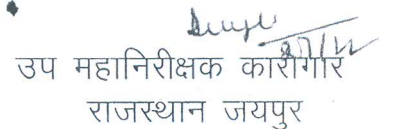 उप महानिरीक्षक कारागार
राजस्थान जयपुर